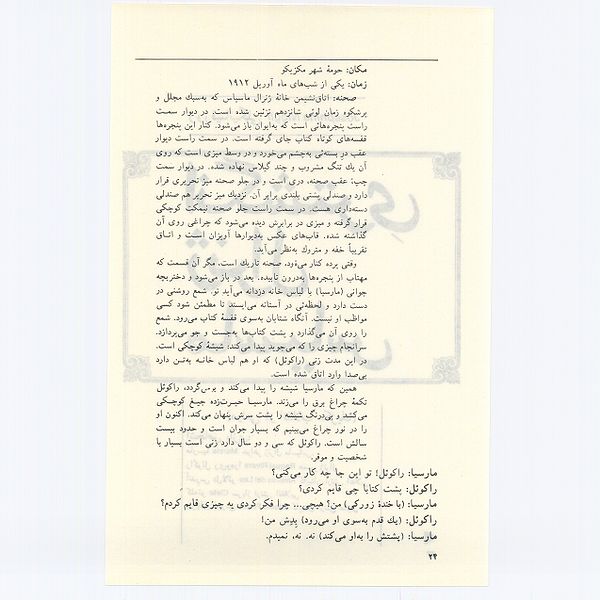 مکان: حومهٔ شهر مکزیکو
زمان: یکی از شب‌های ماه آوریل ۱۹۱۲
صحنه: اتاق‌نشیمن خانهٔ ژنرال ماسیاس که به‌سبك مجلل و
پرشکوه زمان لوئی شانزدهم تزئین شده است. در دیوار سمت
راست پنجره‌هائی است که به‌ایوان باز می‌شود. کنار این پنجره‌ها
قفسه‌های کوتاه کتاب جای گرفته است. در سمت راست دیوار
عقب در بسته‌ئی به‌چشم می‌خورد و در وسط میزی است که روی
آن یك تنگ مشروب و چند گیلاس نهاده شده. در دیوار سمت
چپ، عقب صحنه، دری است و در جلو صحنه میز تحریری قرار
دارد و صندلی پشتی بلندی برابر آن. نزدیك میز تحریر هم صندلی
دسته‌داری هست. در سمت راست جلو صحنه نیمکت کوچکی
قرار گرفته و میزی در برابرش دیده می‌شود که چراغی روی آن
گذاشته شده. قاب‌های عکس به‌دیوارها آویزان است و اتاق
تقریباً خفه و متروك به‌نظر می‌آید.
وقتی پرده کنار می‌رود، صحنه تاریك است، مگر آن قسمت که
مهتاب از پنجره‌ها به‌درون تابیده. بعد در باز می‌شود و دختربچه
جوانی (مارسیا) با لباس خانه دزدانه می‌آید تو. شمع روشنی در
دست دارد و لحظه‌ئی در آستانه می‌ایستد تا مطمئن شود کسی
مواظب او نیست. آنگاه شتابان به‌سوی قفسهٔ کتاب می‌رود. شمع
را روی آن می‌گذارد و پشت کتاب‌ها به‌جست و جو می‌پردازد.
سرانجام چیزی را که می‌جوید پیدا می‌کند: شیشهٔ کوچکی است.
در این مدت زنی (راکوئل) که او هم لباس خانه به‌تن دارد
بی‌صدا وارد اتاق شده است.
همین که مارسیا شیشه را پیدا می‌کند و برمی‌گردد، راکوئل
تکمهٔ چراغ برق را می‌زند. مارسیا حیرت‌زده جیغ کوچکی
می‌کشد و بی‌درنگ شیشه را پشت سرش پنهان می‌کند. اکنون او
را در نور چراغ می‌بینیم که بسیار جوان است و حدود بیست
سالش است. راکوئل که سی و دو سال دارد زنی است بسیار با
شخصیت و موقر.
مارسیا: راکوئل! تو این جا چه کار می‌کنی؟
راکوئل: پشت کتابا چی قایم کردی؟
مارسیا: (با خندهٔ زورکی) من؟ هیچی... چرا فکر کردی یه چیزی قایم کردم؟
راکوئل: (یك قدم به‌سوی او می‌رود) بِدِش من!
مارسیا: (پشتش را به‌او می‌کند) نه. نه، نمیدم.
۲۴